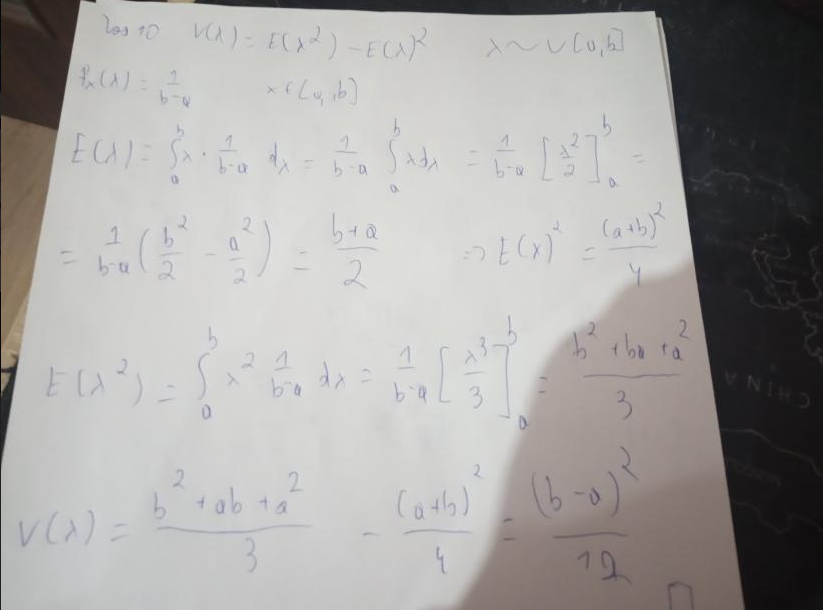 V(x) = E(x²) - E(x)² x ~ U[a,b]
f_x(x) = 1/(b-a) x ∈ [a, b]
E(x) = ∫_a^b x · 1/(b-a) dx = 1/(b-a) ∫_a^b x dx = 1/(b-a) [x²/2]_a^b =
= 1/(b-a) (b²/2 - a²/2) = (b+a)/2 => E(x)² = (a+b)²/4
E(x²) = ∫_a^b x² 1/(b-a) dx = 1/(b-a) [x³/3]_a^b = (b² + ba + a²)/3
V(x) = (b² + ab + a²)/3 - (a+b)²/4 = (b-a)²/12
□
CHINA